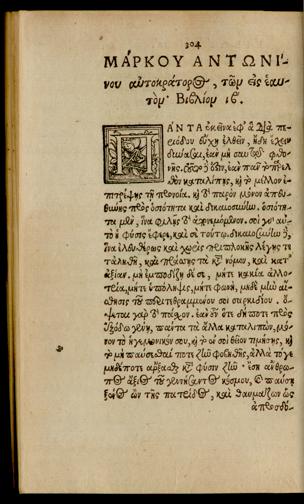 204
ΜΑΡΚΟΥ ΑΝΤΩΝΙ-
νου αὐτοκράτορος, τῶν εἰς ἑαυ-
τὸν Βιβλίον ιβ.
ΠΑΝΤΑ ἐκεῖνα ἐφ' ἃ διὰ πε-
ριόδου εὔχῃ ἐλθεῖν, ἤδη ἔχειν
δύνασαι, ἐὰν μὴ σαυτῷ φθο-
νῇς. τοῦτο δέ ἐστιν, ἐὰν πᾶν τὸ παρελ-
θὸν καταλίπῃς, καὶ τὸ μέλλον ἐ-
πιτρέψῃς τῇ προνοίᾳ. καὶ τὸ παρὸν μόνον ἀπευ-
θύνῃς πρὸς ὁσιότητα καὶ δικαιοσύνην. ὁσιότη-
τα μὲν, ἵνα φιλῇς τὸ ἀπονεμόμενον. σοὶ γὰρ αὐ-
τὸ ἡ φύσις ἔφερε, καὶ σὲ τούτῳ. δικαιοσύνην δὲ,
ἵνα ἐλευθέρως καὶ χωρὶς περιπλοκῆς λέγῃς τε
τἀληθῆ, καὶ πράσσῃς τὰ κατὰ νόμον, καὶ κατ'
ἀξίαν. μὴ ἐμποδίζῃ δέ σε, μήτε κακία ἀλλο-
τρία, μήτε ὑπόληψις, μήτε φωνὴ, μηδὲ μὴν αἴ-
σθησις τοῦ περιτεθραμμένου σοι σαρκιδίου. ὄ-
ψεται γὰρ τὸ πάσχον. ἐὰν οὖν ὅτε δήποτε πρὸς
ἐξόδῳ γένῃ, πάντα τὰ ἄλλα καταλιπὼν, μό-
νον τὸ ἡγεμονικόν σου, καὶ τὸ ἐν σοὶ θεῖον τιμήσῃς, καὶ
τὸ μὴ παύσεσθαί ποτε ζῆν φοβηθῇς, ἀλλὰ τό γε
μηδέποτε ἄρξασθαι κατὰ φύσιν ζῆν· ἔσῃ ἄνθρω-
πος ἄξιος τοῦ γεννήσαντος κόσμου, καὶ παύσῃ
ξένος ὢν τῆς πατρίδος, καὶ θαυμάζων ὡς
ἀπροσδό-